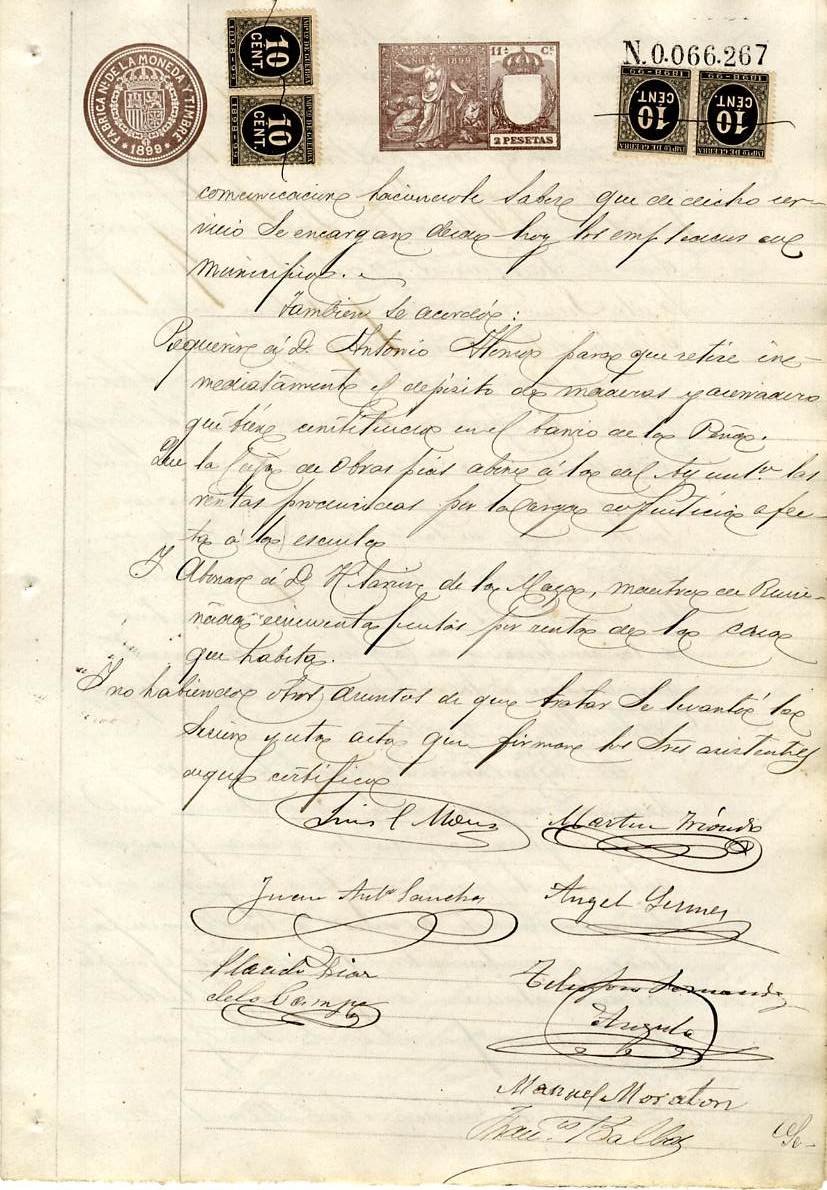 FABRICA Nl. DE LA MONEDA Y TIMBRE
* 1899 *
1898-99
10
CENT.
IMPTO DE GUERRA
1898-99
10
CENT.
IMPTO DE GUERRA
AÑO 1899
11ª Cs
2 PESETAS
N.0.066.267
1898-99
10
CENT.
IMPTO DE GUERRA
1898-99
10
CENT.
IMPTO DE GUERRA
comunicacion haciendole saber que de dicho ser-
vicio se encargan desde hoy los empleados del
Municipio.
Tambien se acordó:
Requerir á D. Antonio Alonso para que retire in-
mediatamente el depósito de maderas y aserradero
que tiene constituido en el barrio de la Peña.
Que la Caja de Obras pias abone á la del Ayuntº. las
rentas producidas por la carga de justicia afec-
ta á la escuela
Y Abonar á D. Hilario de la Maza, maestro de
cincuenta pesetas por renta de la casa
que habita.
Y no habiendo otros asuntos de que tratar se levantó la
Sesion y esta acta que firman los Sres asistentes
de que certifico
Luis
Martin
Juan Antº Sanchez
Angel
Placido Diaz
de la Campa
Telesforo Fernandez
Angulo
Manuel Moraton
Francº Balbas